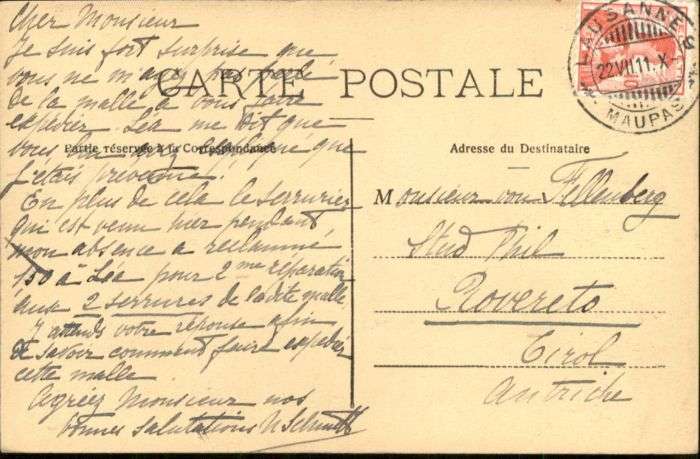 Cher Monsieur
Je suis fort surprise que
vous ne m'ayez pas parlé
de la malle à vous faire
expédier. Léa me dit que
vous lui avez que
j'étais prévenue.
En plus de cela le serrurier
qui est venu hier pendant
mon absence a réclammé
1.50 à Léa pour 2me réparation
aux 2 serrures de ladite malle.
J'attends votre réponse afin
de savoir comment faire expédier
cette malle
Agréez Monsieur nos
bonnes salutations
CARTE POSTALE
Partie réservée à la Correspondance
Adresse du Destinataire
Monsieur von Fellenberg
Stud Phil
Rovereto
Tirol
Autriche
LAUSANNE
22.VII.11.X
MAUPAS